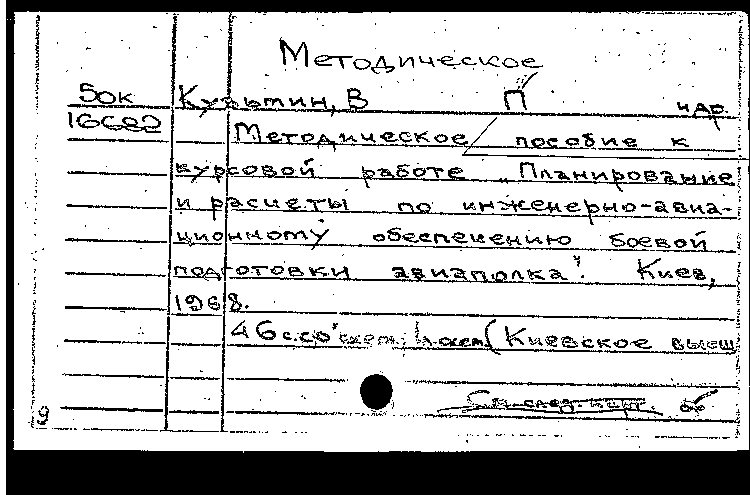 Методическое
50к Кузьмин, В П и др.
16сс2 Методическое пособие к
курсовой работе „Планирование
и расчеты по инженерно-авиа-
ционному обеспечению боевой
подготовки авиаполка". Киев,
1968.
46с. со схем; (Киевское высш
См. след. карт. об